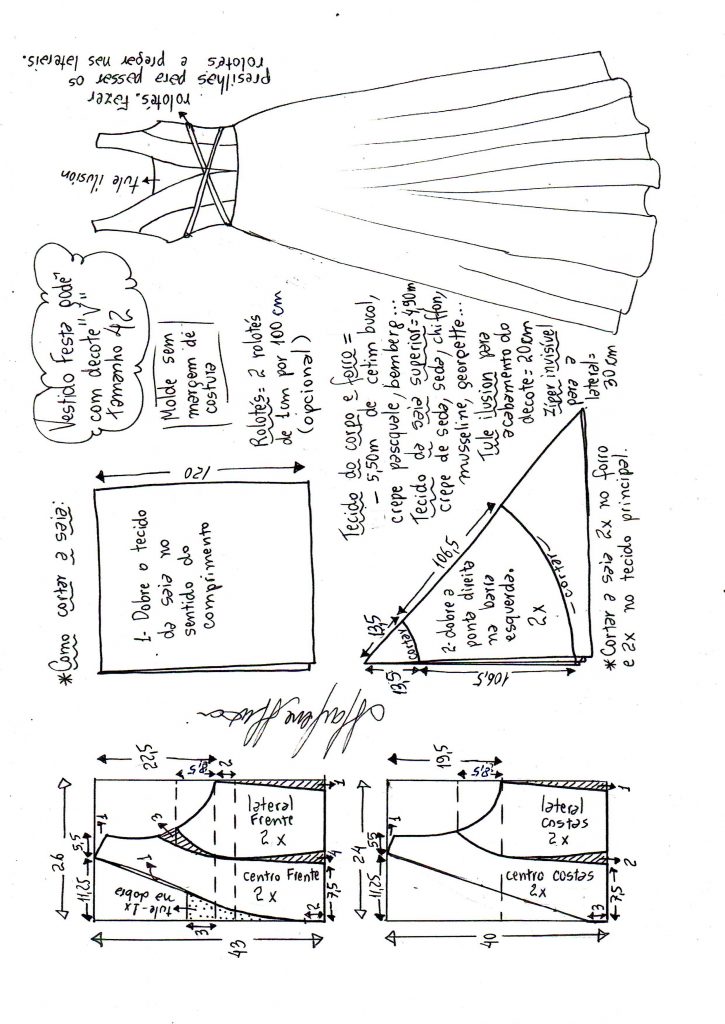 rolotés. Fazer
presilhas para passar os
rolotés e pregar nas laterais.
tule ilusión
Vestido Festa pode"
com decote "V"
tamanho 42
Molde sem
margem de
costura
Rolotés= 2 rolotés
de 1cm por 100 cm
(opcional)
Tecido do corpo e forro =
- 5,50m de cetim bucol,
crepe pascquale, bemberg...
Tecido da saia superior= 4,90m
crepe de seda, seda, chiffon,
musseline, georgette...
Tule ilusion para
acabamento do
decote= 20cm
Ziper invisível
para a
lateral=
30 cm
*Como cortar a saia:
120
1- Dobre o tecido
da saia no
sentido do
comprimento
13,5
106,5
cortar
2- dobre a
ponta direita
na barra
esquerda.
2x
- cortar -
13,5
106,5
*Cortar a saia 2x no forro
e 2x no tecido principal.
26
11,25
5,5
1
22,5
8,5
2
3
1
lateral
Frente
2 x
centro Frente
2 x
tule-1x
na dobra
3
43
2
7,5
4
1
24
11,25
5,5
1
19,5
8,5
lateral
costas
2 x
centro costas
2x
40
3
7,5
2
1